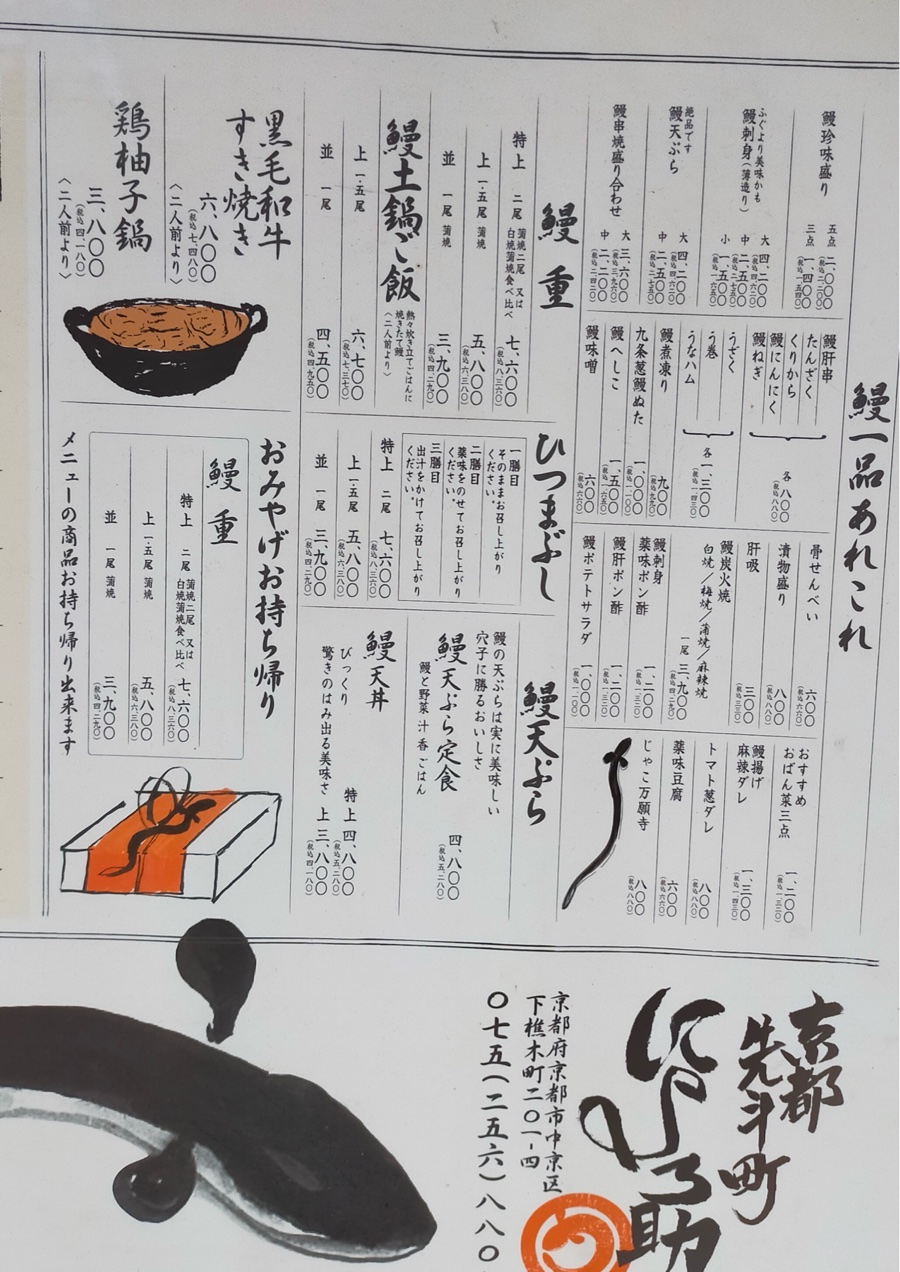 鰻一品あれこれ
鰻珍味盛り
五点 二、〇〇〇
(税込二、二〇〇)
三点 一、四〇〇
(税込一、五四〇)
ふぐより美味かも
鰻刺身(薄造り)
大 四、二〇〇
(税込四、六二〇)
中 二、五〇〇
(税込二、七五〇)
小 一、五〇〇
(税込一、六五〇)
絶品です
鰻天ぷら
大 四、二〇〇
(税込四、六二〇)
中 二、五〇〇
(税込二、七五〇)
鰻串焼盛り合わせ
大 三、六〇〇
(税込三、九六〇)
中 二、二〇〇
(税込二、四二〇)
鰻肝串
たんざく
くりから
鰻にんにく
鰻ねぎ
各 八〇〇
(税込八八〇)
うざく
う巻
うなハム
各 一、三〇〇
(税込一、四三〇)
鰻煮凍り 九〇〇
(税込九九〇)
九条葱鰻ぬた 一、〇〇〇
(税込一、一〇〇)
鰻へしこ 一、五〇〇
(税込一、六五〇)
鰻味噌 六〇〇
(税込六六〇)
骨せんべい 六〇〇
(税込六六〇)
漬物盛り 八〇〇
(税込八八〇)
肝吸 三〇〇
(税込三三〇)
鰻炭火焼
白焼/梅焼/蒲焼/麻辣焼
一尾 三、九〇〇
(税込四、二九〇)
鰻刺身
薬味ポン酢 一、二〇〇
(税込一、三二〇)
鰻肝ポン酢 一、二〇〇
(税込一、三二〇)
鰻ポテトサラダ 一、〇〇〇
(税込一、一〇〇)
おすすめ
おばん菜三点 一、二〇〇
(税込一、三二〇)
鰻揚げ
麻辣ダレ 一、三〇〇
(税込一、四三〇)
トマト葱ダレ 八〇〇
(税込八八〇)
薬味豆腐 六〇〇
(税込六六〇)
じゃこ万願寺 八〇〇
(税込八八〇)
鰻重
特上 二尾 蒲焼二尾 又は
白焼蒲焼食べ比べ 七、六〇〇
(税込八、三六〇)
上 一・五尾 蒲焼 五、八〇〇
(税込六、三八〇)
並 一尾 蒲焼 三、九〇〇
(税込四、二九〇)
鰻土鍋ご飯
熱々炊き立てごはんに
焼きたて鰻
〈二人前より〉
上 一・五尾 六、七〇〇
(税込七、三七〇)
並 一尾 四、五〇〇
(税込四、九五〇)
ひつまぶし
一膳目
そのままお召し上がり
ください。
二膳目
薬味をのせてお召し上がり
ください。
三膳目
出汁をかけてお召し上がり
ください。
特上 二尾 七、六〇〇
(税込八、三六〇)
上 一・五尾 五、八〇〇
(税込六、三八〇)
並 一尾 三、九〇〇
(税込四、二九〇)
鰻天ぷら
鰻の天ぷらは実に美味しい
穴子に勝るおいしさ
鰻天ぷら定食
鰻と野菜 汁 香 ごはん
四、八〇〇
(税込五、二八〇)
鰻天丼
びっくり
驚きのはみ出る美味さ
特上 四、八〇〇
(税込五、二八〇)
上 三、八〇〇
(税込四、一八〇)
黒毛和牛
すき焼き
六、八〇〇
(税込七、四八〇)
〈二人前より〉
鶏柚子鍋
三、八〇〇
(税込四、一八〇)
〈二人前より〉
おみやげお持ち帰り
鰻重
特上 二尾 蒲焼二尾 又は
白焼蒲焼食べ比べ 七、六〇〇
(税込八、三六〇)
上 一・五尾 蒲焼 五、八〇〇
(税込六、三八〇)
並 一尾 蒲焼 三、九〇〇
(税込四、二九〇)
メニューの商品お持ち帰り出来ます
京都
先斗町
にょろ助
京都府京都市中京区
下樵木町二〇一-四
〇七五(二五六)八八〇